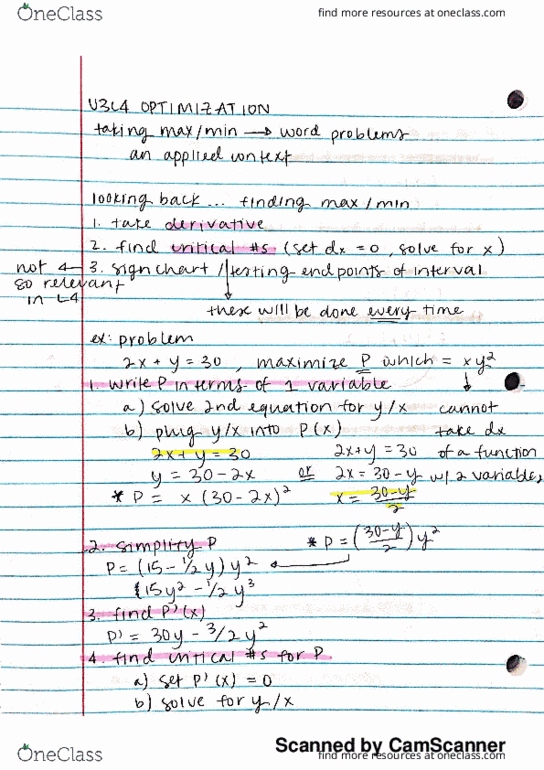 OneClass
find more resources at oneclass.com
U3L4 OPTIMIZATION
taking max/min → word problems
an applied context
looking back... finding max/min
1. take derivative
2. find critical #s (set dx = 0, solve for x)
not ← 3. sign chart / testing end points of interval
so relevant
in L4
these will be done every time
ex: problem
2x + y = 30, maximize P which = xy²
1. write P in terms of 1 variable
a) solve 2nd equation for y/x
cannot
b) plug y/x into P(x)
take dx
2x + y = 30
2x+y = 30
of a function
y = 30 - 2x or 2x = 30 - y
w/ 2 variables
* P = x (30 - 2x)²
x = 30-y/2
2. simplify P
* P = (30-y/2) y²
P = (15 - 1/2 y) y²
15y² - 1/2 y³
3. find P'(x)
P' = 30y - 3/2 y²
4. find critical #s for P
a) set P'(x) = 0
b) solve for y/x
Scanned by CamScanner
OneClass
find more resources at oneclass.com